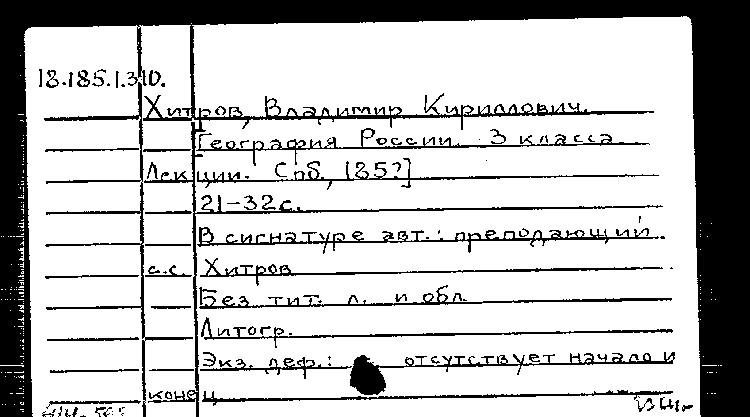 18.185.1.310.
Хитров, Владимир Кириллович.
[География России. 3 класса.
Лекции. Спб., 185?]
21-32 с.
В сигнатуре авт.: преподающий
с.с. Хитров
Без тит. л. и обл.
Литогр.
Экз. деф.: отсутствует начало и
конец